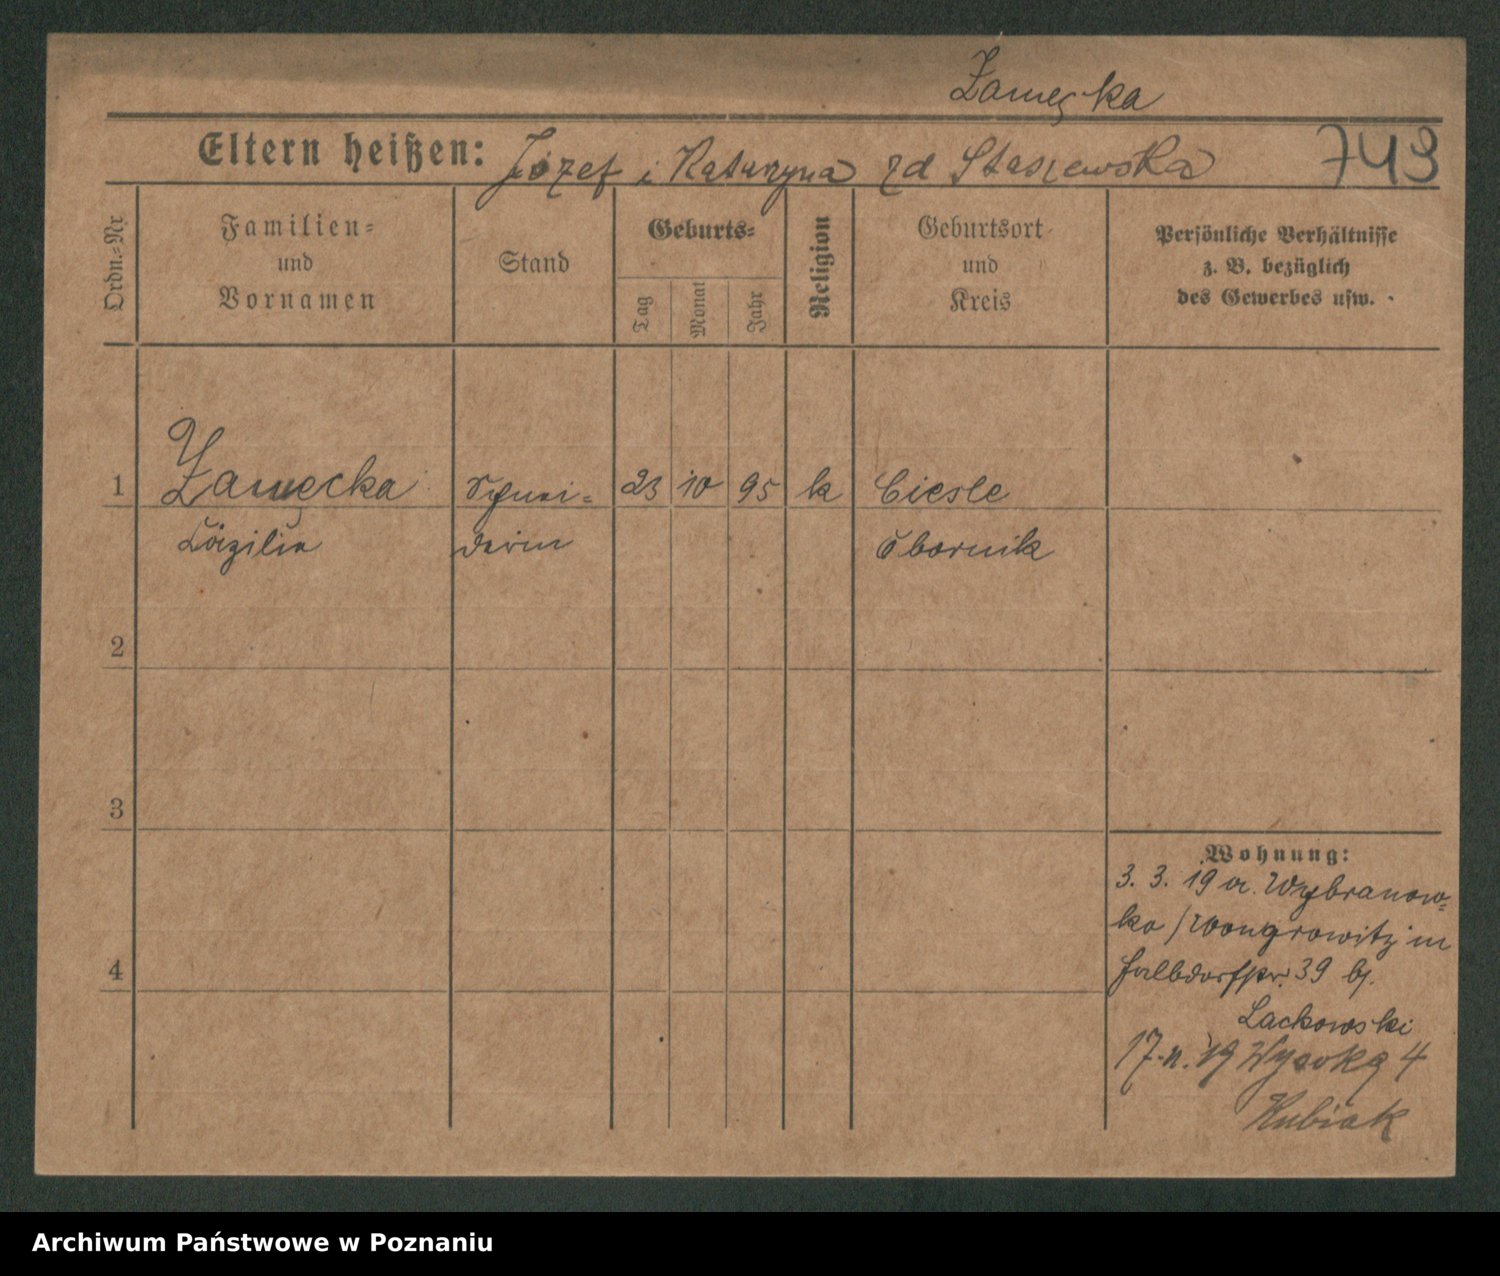 Zamecka
Eltern heißen: Józef i Katarzyna zd Staszewska 743
Ordn.-Nr
Familien-
und
Vornamen
Stand
Geburts-
Tag
Monat
Jahr
Religion
Geburtsort
und
Kreis
Persönliche Verhältnisse
z. B. bezüglich
des Gewerbes usw.
1 Zamecka Schnei- 23 10 95 k Ciesle
Cäzilie derin Obornik
2
3
4
Wohnung:
3. 3. 19 a. Wybranow-
ko / Wongrowitz in
Halbdorfstr. 39 bj.
Lackowski
17. 19 Wysoka 4
Kubiak
Archiwum Państwowe w Poznaniu